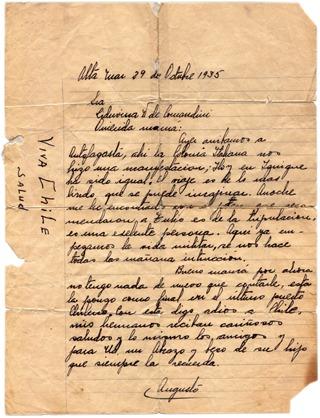 Alta mar 29 de Octubre 1935
Sra
Edwvina V de Comandini
Querida mama:
Ayer arribamos a
Antofagasta, ahi la Colonia Italiana nos
hizo una manifestación; Hoy en Iquique
ha sido igual. El viaje es de lo mas
lindo que se puede imaginar. Anoche
me he encontrado con el que reco
mendaron a Tulio es de la tripulacion,
es una exelente persona. Aqui ya em
pezamos la vida militar, se nos hace
todas las mañana intruccion.
Bueno mamá por ahora
no tengo nada de nuevo que contarle, esta
la pongo como final en el ultimo puerto
chileno, con esto digo adios a Chile,
mis hermanos reciban cariñosos
saludos y lo mismo los amigos y
para Ud. un abrazo y beso de su hijo
que siempre la recuerda.
Augusto
VIVA CHILE
SALUD